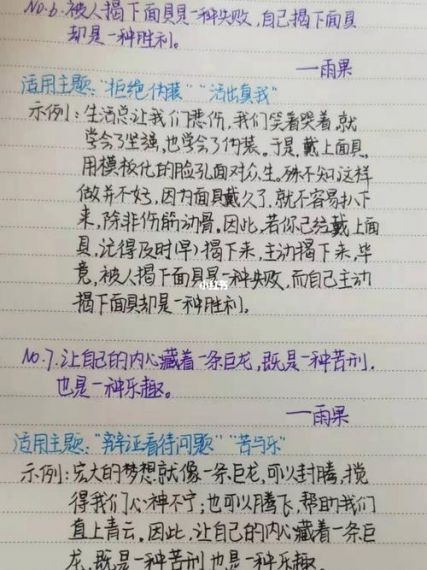 No.6. 被人揭下面具是一种失败,自己揭下面具
却是一种胜利。
——雨果
适用主题:“拒绝伪装”“活出真我”
示例:生活总让我们悲伤,我们笑着哭着,就
学会了坚强,也学会了伪装。于是,戴上面具,
用模板化的脸孔面对众生,殊不知这样
做并不好,因为面具戴久了,就不容易扒下
来,除非伤筋动骨。因此,若你已经戴上面
具,记得及时(早)揭下来,主动揭下来,毕
竟,被人揭下面具是一种失败,而自己主动
揭下面具却是一种胜利。
小红书
No.7. 让自己的内心藏着一条巨龙,既是一种苦刑,
也是一种乐趣。
——雨果
适用主题:“辩证看待问题”“苦与乐”
示例:宏大的梦想就像一条巨龙,可以封腾,搅
得我们心神不宁;也可以腾飞,帮助我们
直上青云。因此,让自己的内心藏着一条巨
龙,既是一种苦刑,也是一种乐趣。